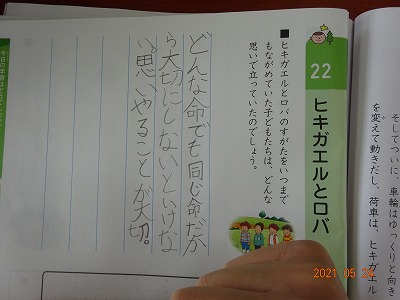 そしてついに、車輪はゆっくりと向き
を変えて動きだし、荷車は、ヒキガエル
22
ヒキガエルとロバ
■ヒキガエルとロバのすがたをいつまで
もながめていた子どもたちは、どんな
思いで立っていたのでしょう。
どんな命でも同じ命だか
ら大切にしないといけな
い。思いやることが大切。
今日の学習
2021 05